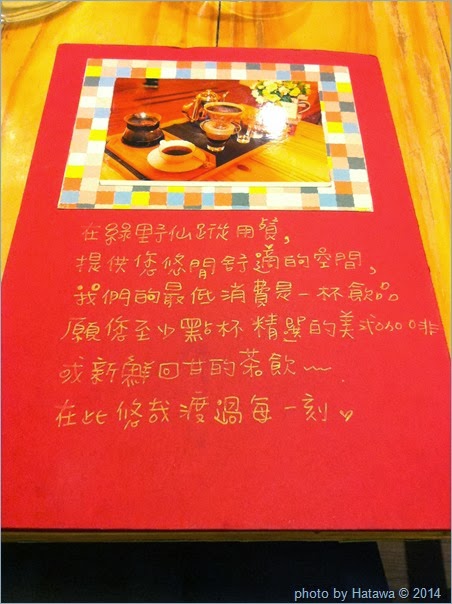 在綠野仙蹤用餐,
提供您悠閒舒適的空間,
我們的最低消費是一杯飲品
願您至少點杯精選的美式咖啡
或新鮮回甘的茶飲～
在此悠哉渡過每一刻♡
photo by Hatawa © 2014